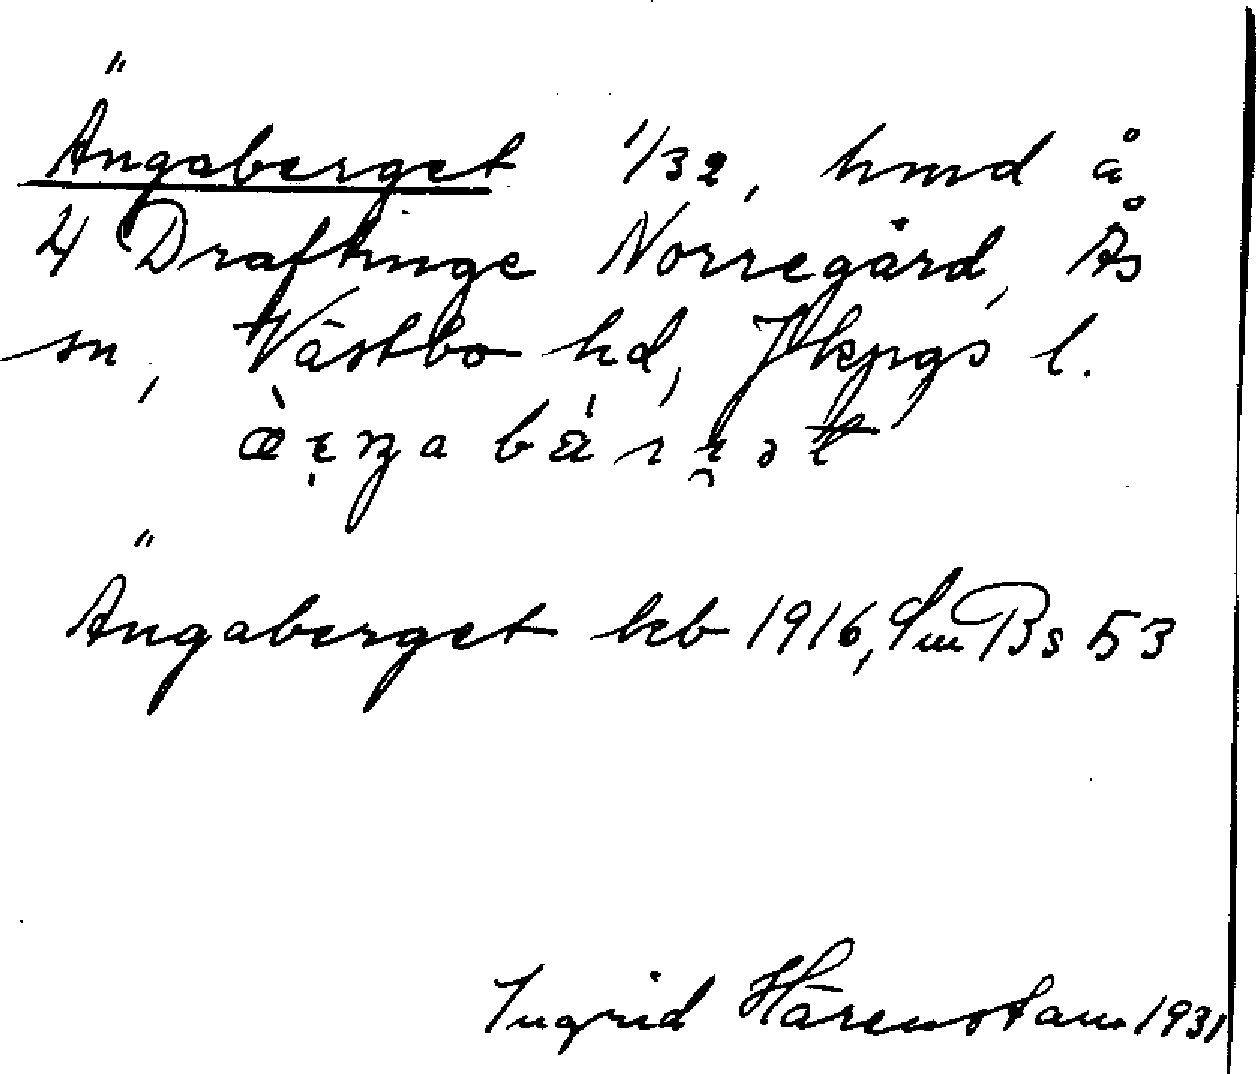 Ängaberget 1/32, hmd å
4 Draftinge Norregård, Ås
sn, Västbo hd, Jkpgs l.
Ängaberget kb 1916, Sm Bs 53
Ingrid Härenstam 1931